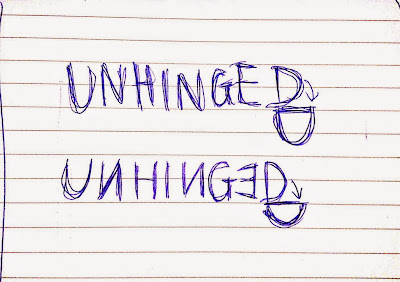 UNHINGED
UИHIИGƎD